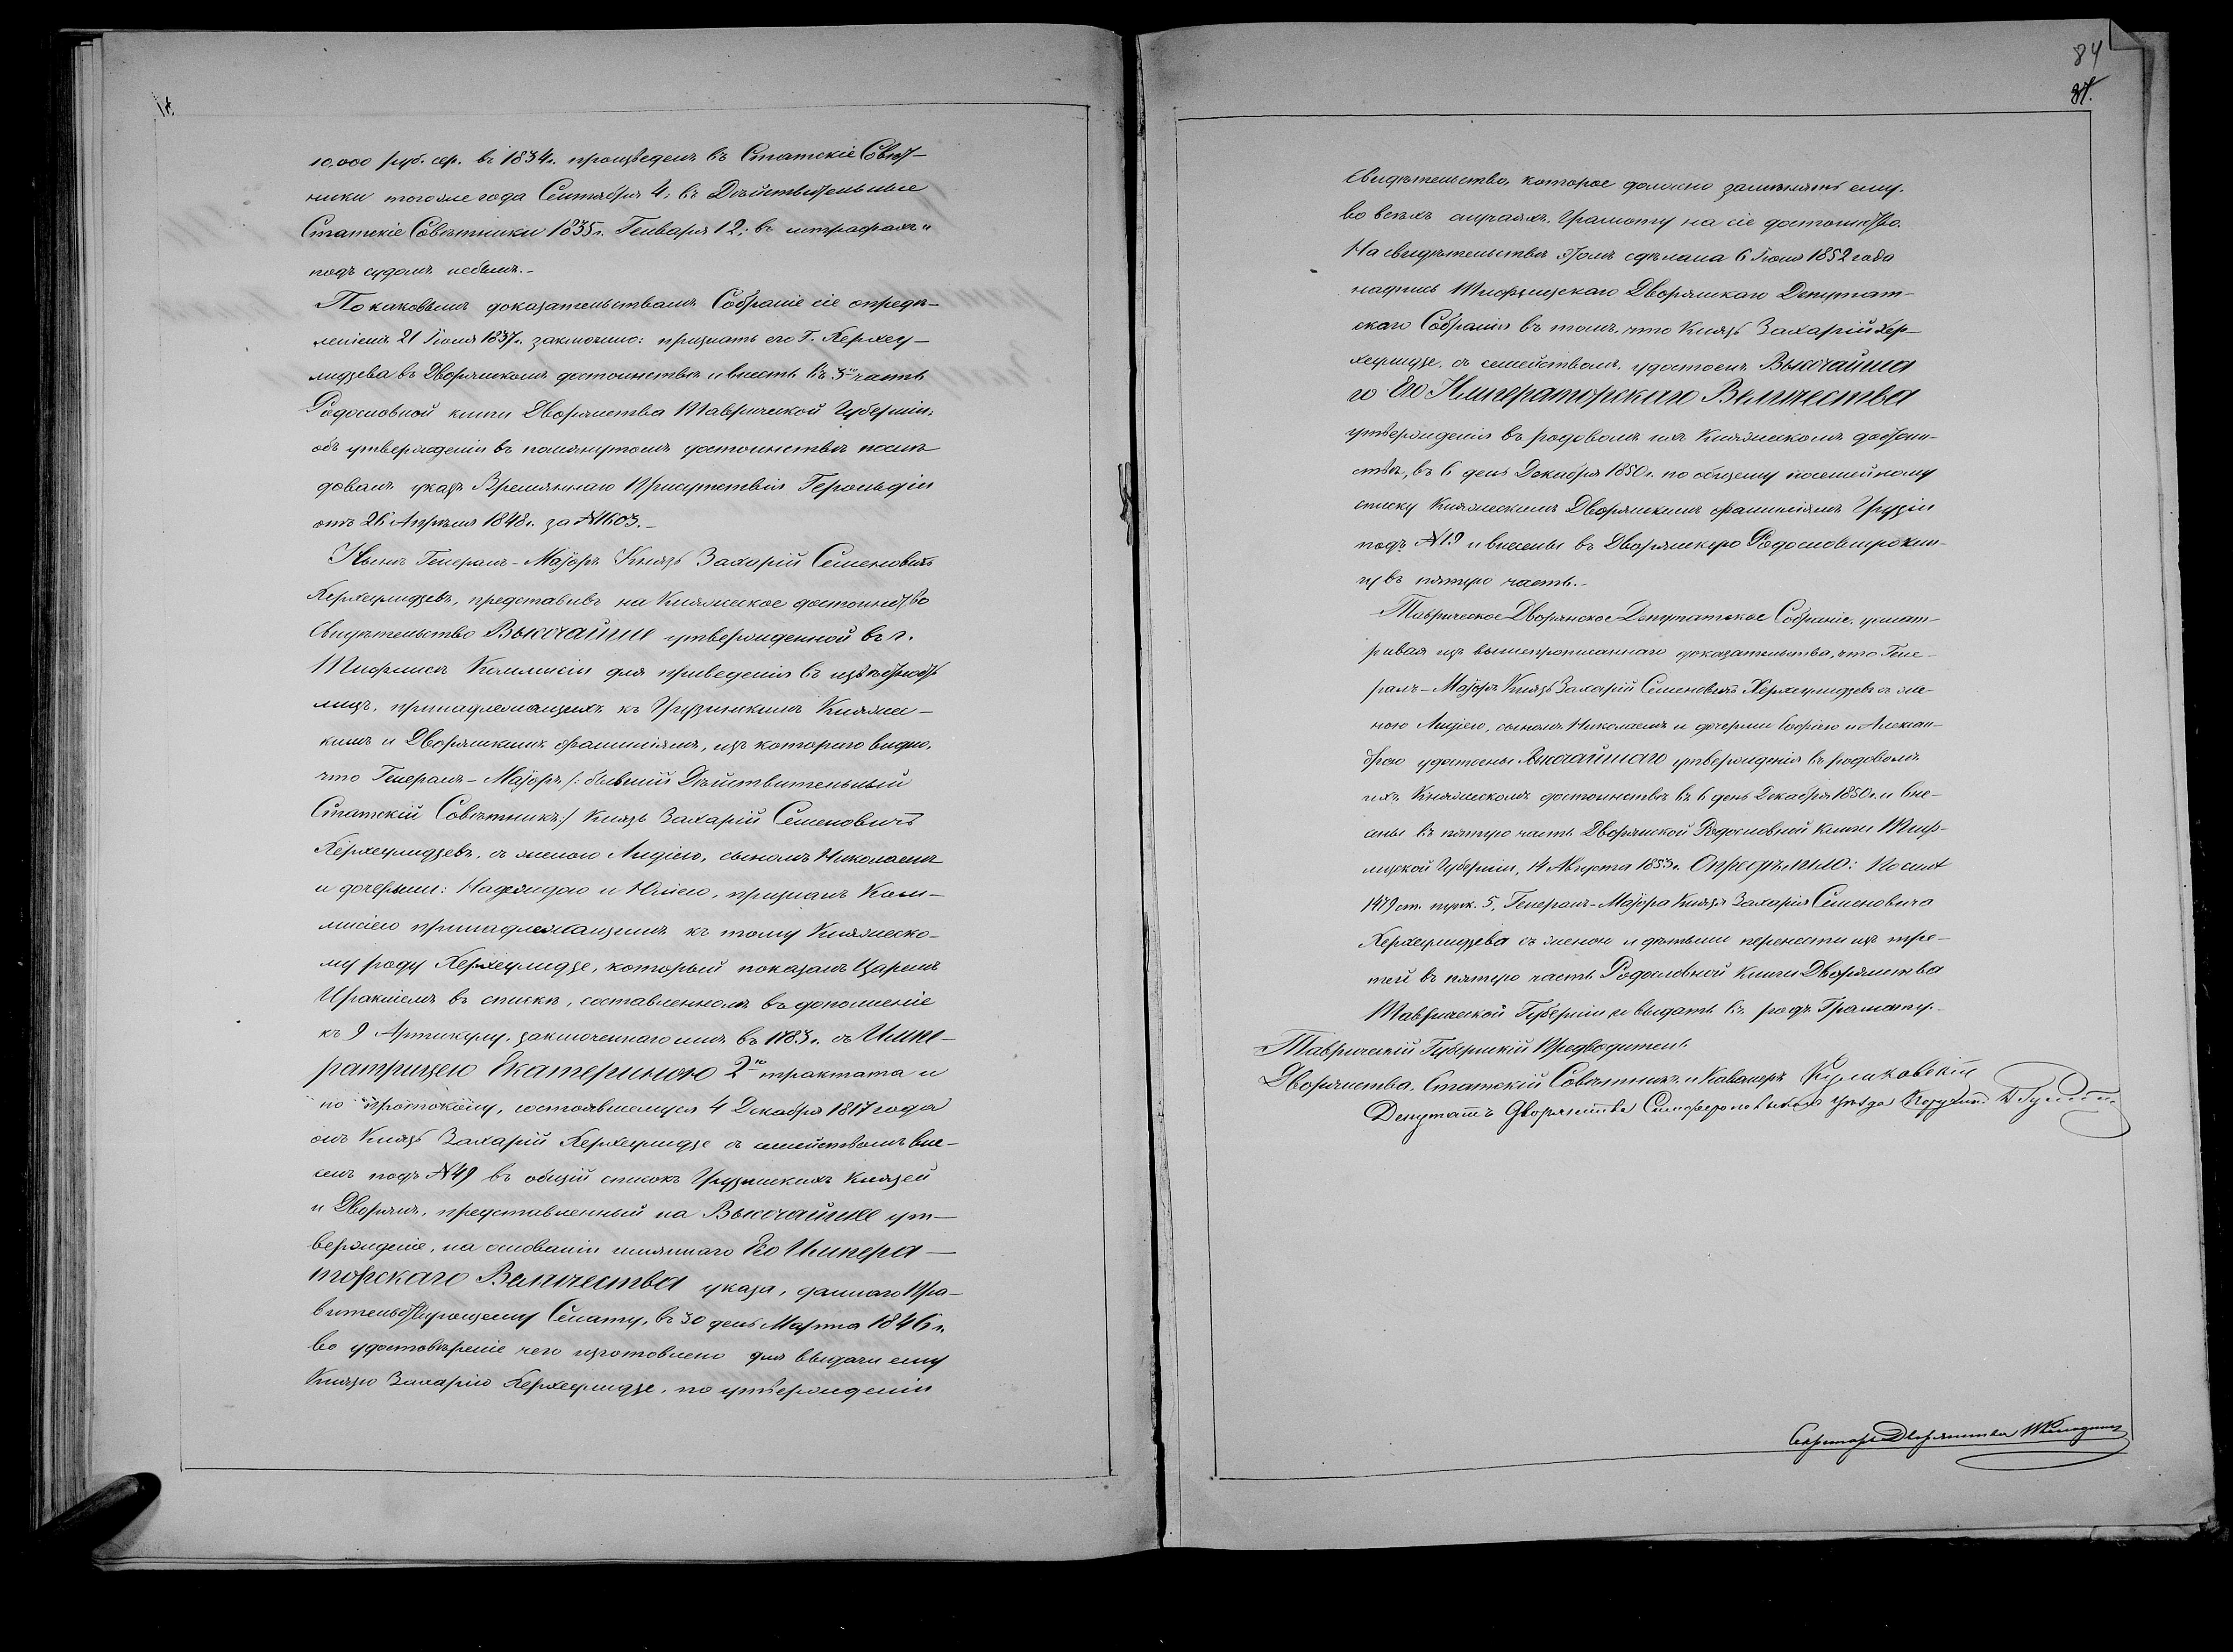 10.000 руб. сер. въ 1834г. произведенъ въ Статскіе Совѣт-
ники тогоже года Сентября 4; въ Дѣйствительные
Статскіе Совѣтники 1835г. Генваря 12; въ штрафахъ и
подъ судомъ небылъ.-
По каковымъ доказательствамъ Собраніе сіе опредѣ-
леніемъ 21 Іюля 1837г. заключило: признать его Г. Херхеу-
лидзева въ Дворянскомъ достоинствѣ и внесть въ 3ю часть
Родословной книги Дворянства Таврической Губерніи;
объ утвержденіи въ помянутомъ достоинствѣ послѣ-
довалъ указъ Временнаго Присутствія Герольдіи
отъ 26 Апрѣля 1848г. за №1603.-
Нынѣ Генералъ-Маіоръ Князь Захарій Семеновичъ
Херхеулидзевъ, представивъ на Княжеское достоинство
Свидѣтельство Высочайше утвержденной въ г.
Тифлисѣ Коммисіи для приведенія въ извѣстность
лицъ, принадлежащихъ къ Грузинскимъ Княжес-
кимъ и Дворянскимъ фамиліямъ, изъ котораго видно,
что Генералъ-Маіоръ /: бывшій Дѣйствительный
Статскій Совѣтникъ:/ Князь Захарій Семеновичъ
Херхеулидзевъ, съ женою Лидіею, сыномъ Николаемъ
и дочерьми: Надеждою и Юліею, признанъ Ком-
мисіею принадлежащимъ къ тому Княжеско-
му роду Херхеулидзе, который показанъ Царемъ
Иракліемъ въ спискѣ, составленномъ въ дополненіе
къ 9 Артикулу, заключеннаго имъ въ 1783г. съ Импе-
ратрицею Екатериною 2ю трактата и
по протоколу, состоявшемуся 4 Декабря 1817 года
онъ Князь Захарій Херхеулидзе съ семействомъ вне-
сенъ подъ №49 въ общій списокъ Грузинскихъ Князей
и Дворянъ, представленный на Высочайшее ут-
вержденіе, на основаніи имяннаго Его Импера-
торскаго Величества указа, даннаго Пра-
вительствующему Сенату, въ 30 день Марта 1846г.
во удостовѣреніе чего изготовлено для выдачи ему
Князю Захарію Херхеулидзе, по утвержденіи
84
Свидѣтельство, которое должно замѣнять ему,
во всѣхъ случаяхъ, Грамоту на сіе достоинство.
На свидѣтельствѣ этомъ сдѣлана 6 Іюня 1852 года
надпись Тифлисскаго Дворянскаго Депутат-
скаго Собранія въ томъ, что Князь Захарій Хер-
хеулидзе, съ семействомъ, удостоенъ Высочайша
го Его Императорскаго Величества
утвержденія въ родовомъ ихъ Княжескомъ достоин-
ствѣ, въ 6 день Декабря 1850г. по общему посемейному
списку Княжескимъ Дворянскимъ фамиліямъ Грузіи
подъ №19 и внесены въ Дворянскую Родословную кни-
гу въ пятую часть.-
Таврическое Дворянское Депутатское Собраніе, усмат-
ривая изъ вышепрописаннаго доказательства, что Гене-
ралъ-Маіоръ Князь Захарій Семеновичъ Херхеулидзевъ съ же-
ною Лидіею, сыномъ Николаемъ и дочерьми Софіею и Алексан-
дрою удостоены Высочайшаго утвержденія въ родовомъ
ихъ Княжескомъ достоинствѣ въ 6 день Декабря 1850г. и вне-
сены въ пятую часть Дворянской Родословной книги Тиф-
лисской Губерніи, 14 Августа 1853г. Опредѣлило: По силѣ
1479 ст. пунк. 5, Генералъ-Маіора Князя Захарія Семеновича
Херхеулидзева съ женою и дѣтьми перенести изъ тре-
тей въ пятую часть Родословной книги Дворянства
Таврической Губерніи и выдать въ родъ Грамату.-
Таврическій Губернскій Предводитель
Дворянства, Статскій Совѣтникъ и Кавалеръ
Депутатъ Дворянства Симферопольскаго уѣзда
Секретарь Дворянства